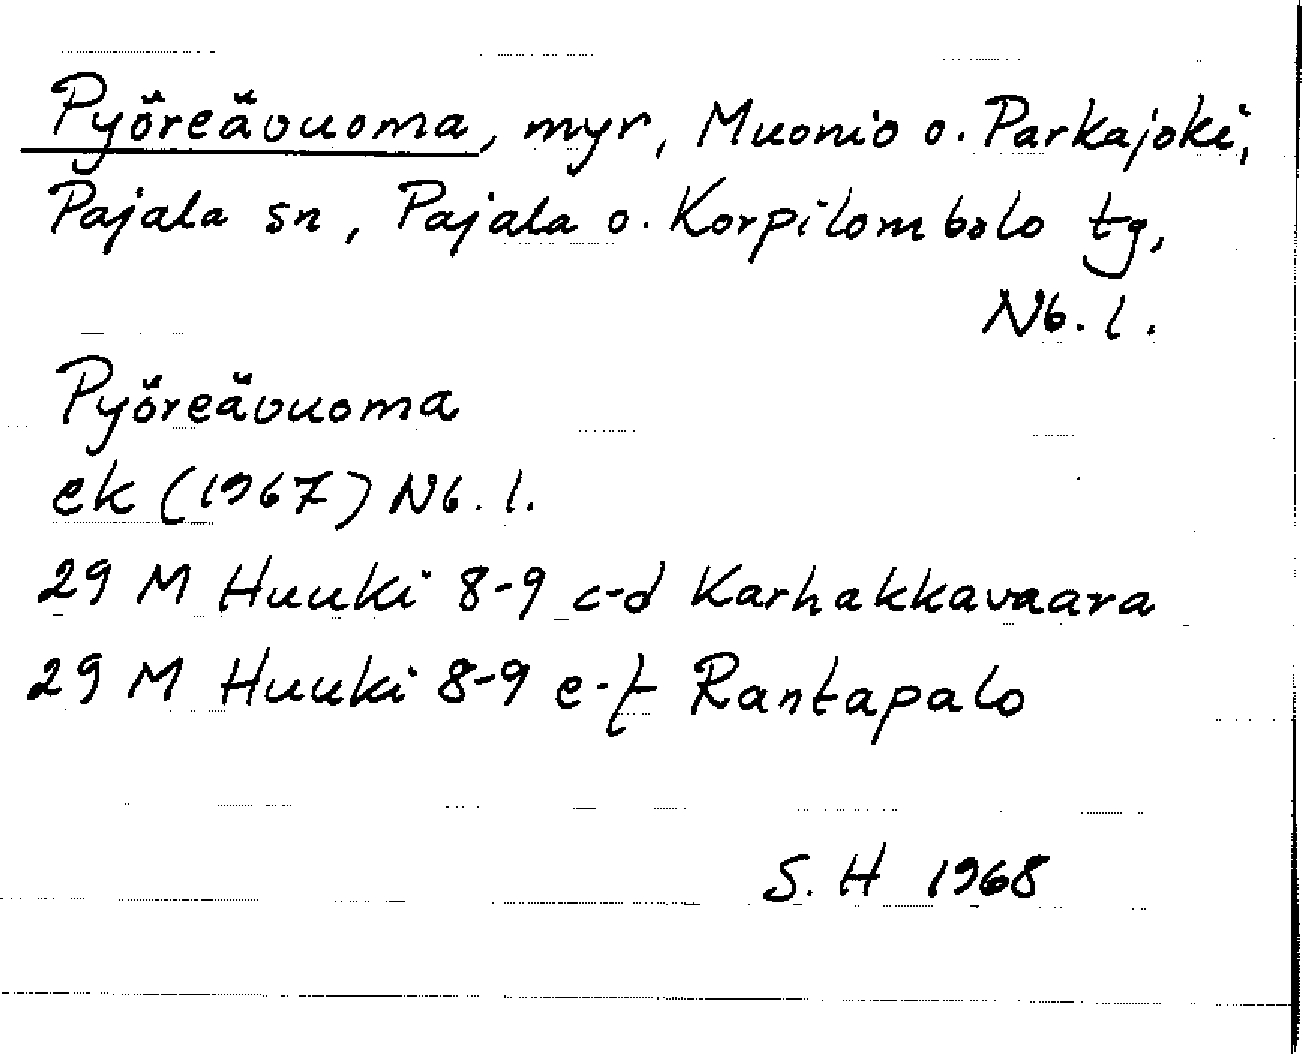 Pyöreävuoma, myr, Muonio o. Parkajoki,
Pajala sn, Pajala o. Korpilombolo tg,
Nb. l.
Pyöreävuoma
ek (1967) Nb. l.
29 M Huuki 8-9 c-d Karhakkavaara
29 M Huuki 8-9 e-f Rantapalo
S. H 1968